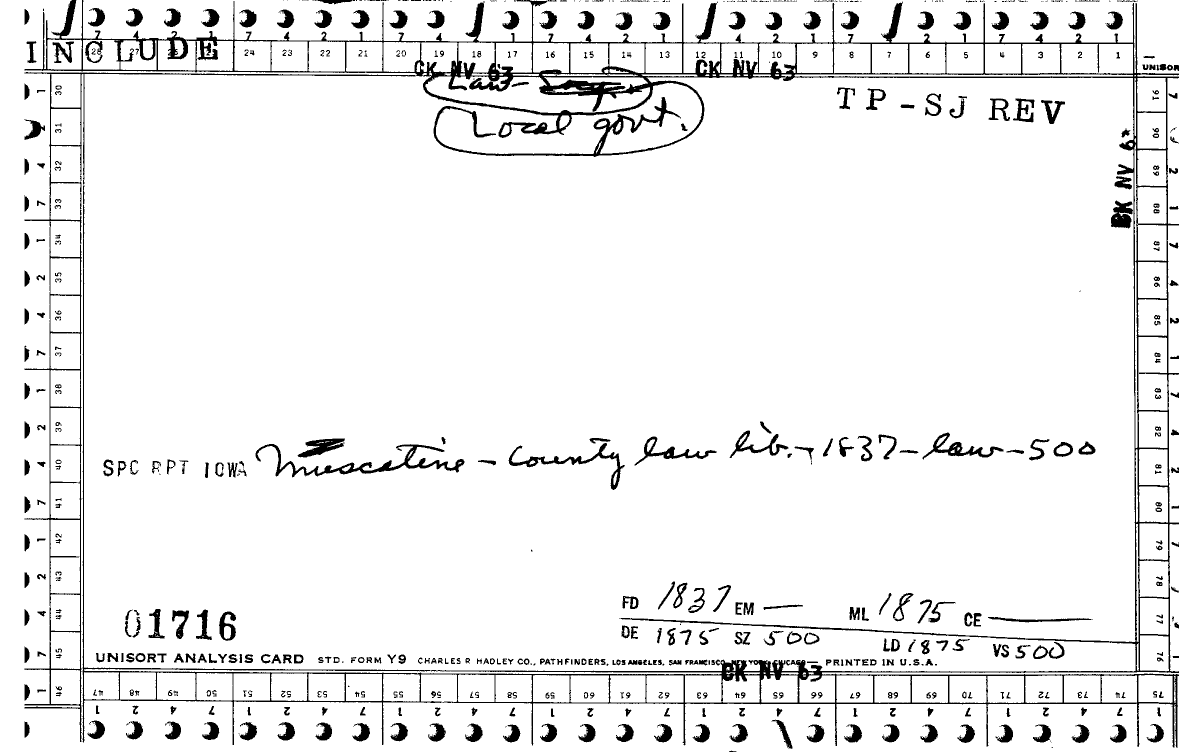 7 4 2 1 7 4 2 1 7 4 2 1 7 4 2 1 7 4 2 1 7 4 2 1
INCLUDE
28 27 24 23 22 21 20 19 18 17 16 15 14 13 12 11 10 9 8 7 6 5 4 3 2 1
UNISOR
CK NV 63 CK NV 63
Law-
Local govt.
TP-SJ REV
BK NV 63
1 30 91 7
31 90
4 32 89 2
7 33 88 1
1 34 87 7
2 35 86 4
4 36 85 2
7 37 84 1
1 38 83 7
2 39 82 4
4 40 81 2
7 41 80 1
1 42 79 7
2 43 78
4 44 77
7 45 76
SPC RPT IOWA Muscatine - County law lib. - 1837 - law - 500
FD 1837 EM — ML 1875 CE —
DE 1875 SZ 500 LD 1875 VS 500
01716
UNISORT ANALYSIS CARD STD. FORM Y9 CHARLES R HADLEY CO., PATHFINDERS, LOS ANGELES, SAN FRANCISCO, NEW YORK, CHICAGO — PRINTED IN U.S.A.
CK NV 63
1 46 47 48 49 50 51 52 53 54 55 56 57 58 59 60 61 62 63 64 65 66 67 68 69 70 71 72 73 74 75
1 2 4 7 1 2 4 7 1 2 4 7 1 2 4 7 1 2 4 7 1 2 4 7 1 2 4 7 1